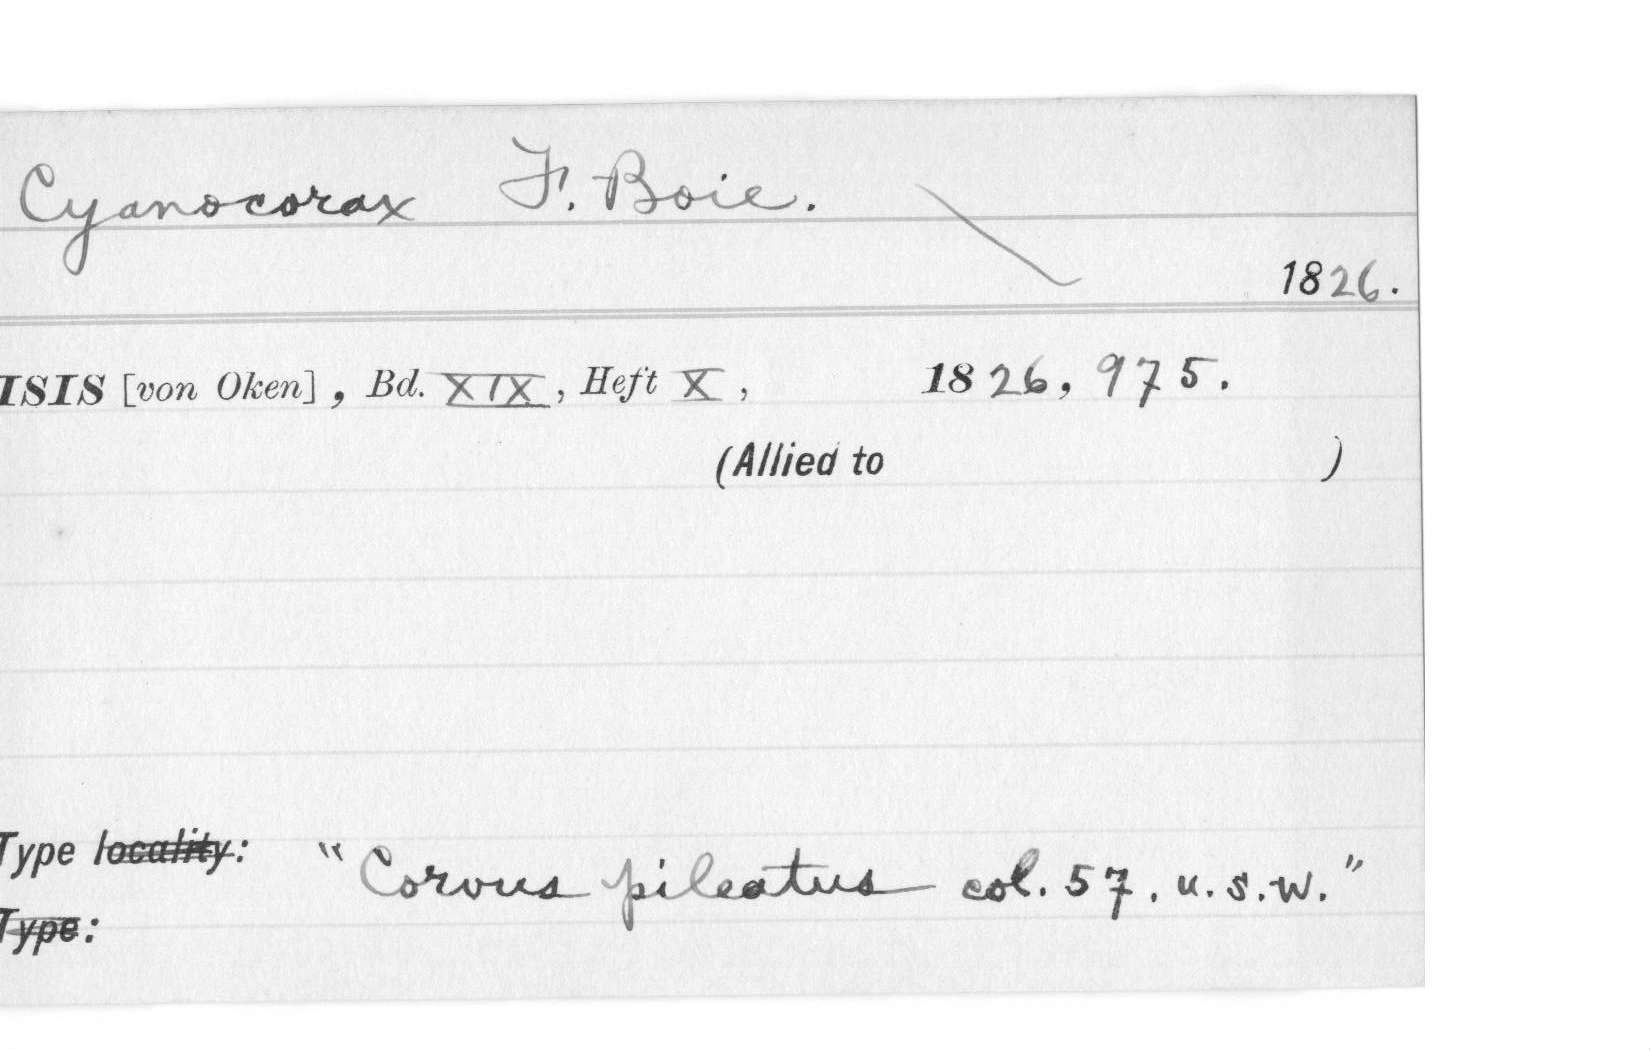 Cyanocorax F. Boie.
1826.
ISIS [von Oken], Bd. XIX, Heft X, 1826, 975.
(Allied to )
Type locality:
"Corvus pileatus col. 57. u.s.w."
Type: